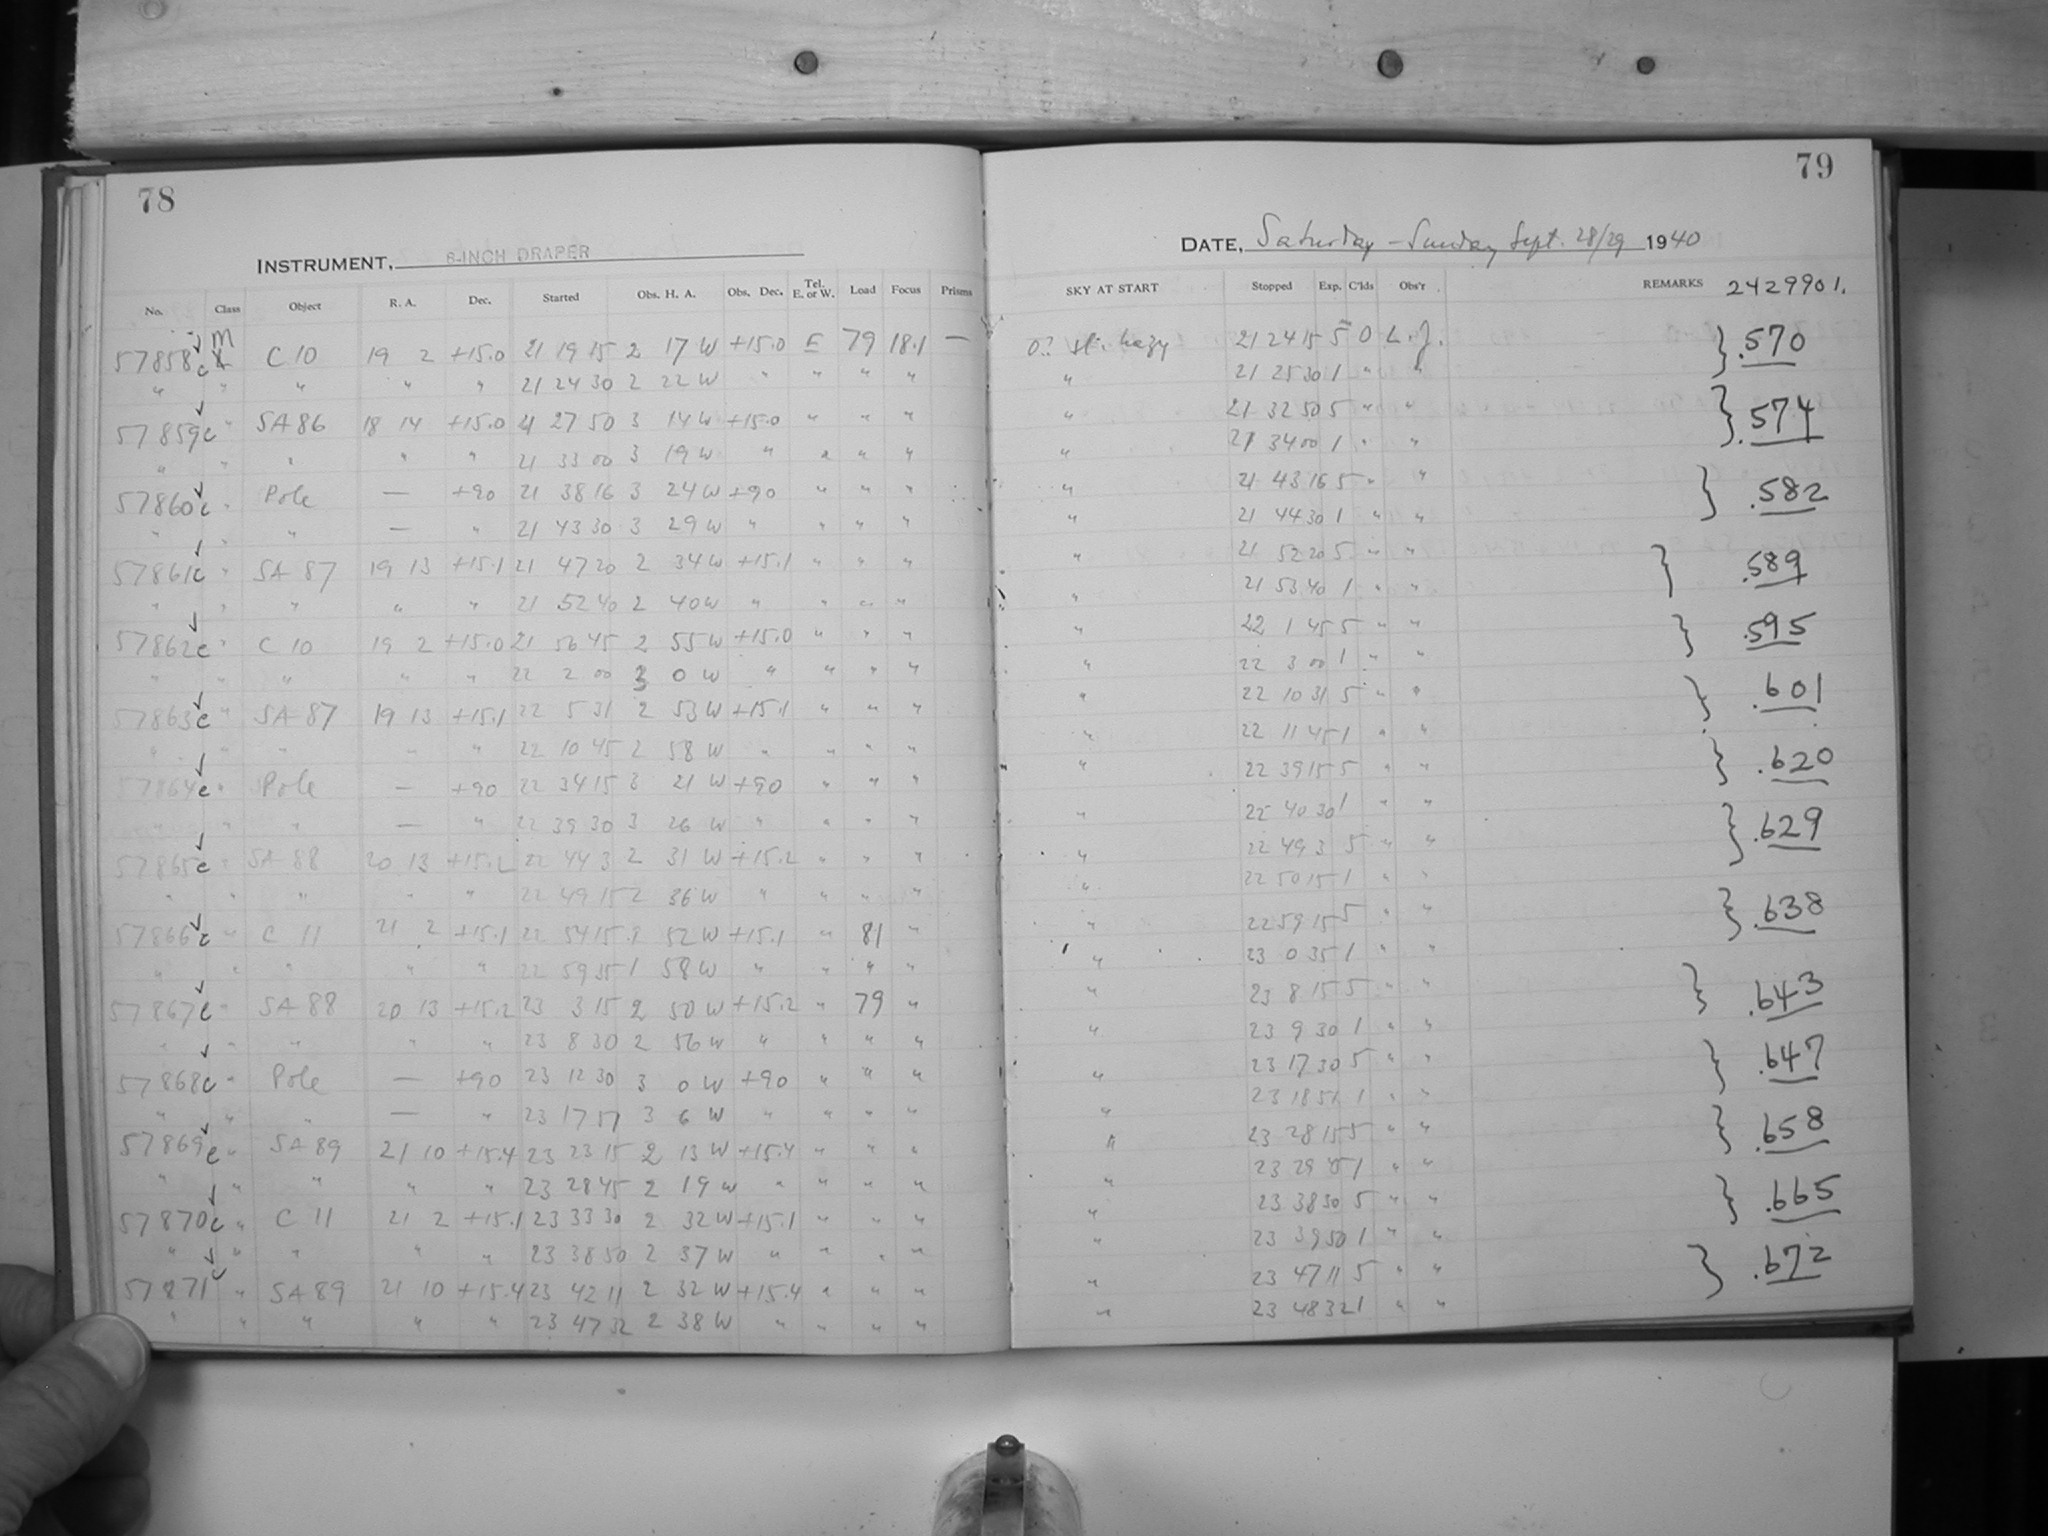 78
79
INSTRUMENT, 8-INCH DRAPER
DATE, Saturday – Sunday Sept. 28/29 1940
No. Class Object R. A. Dec. Started Obs. H. A. Obs. Dec. Tel. E. or W. Load Focus Prisms SKY AT START Stopped Exp. C'lds Obs'r REMARKS 2429901.
57858c M C 10 19 2 +15.0 21 19 15 2 17 W +15.0 E 79 18.1 — 0? sl. hazy 21 24 15 5 0 L.J. } .570
" " " " " 21 24 30 2 22 W " " " " " 21 25 30 1 " "
57859c " SA 86 18 14 +15.0 21 27 50 3 14 W +15.0 " " " " 21 32 50 5 " " } .574
" " " " " 21 33 00 3 19 W " " " " " 21 34 00 1 " "
57860c " Pole — +90 21 38 16 3 24 W +90 " " " " 21 43 16 5 " " } .582
" " " — " 21 43 30 3 29 W " " " " " 21 44 30 1 " "
57861c " SA 87 19 13 +15.1 21 47 20 2 34 W +15.1 " " " " 21 52 20 5 " " } .589
" " " " " 21 52 40 2 40 W " " " " " 21 53 40 1 " "
57862c " C 10 19 2 +15.0 21 56 45 2 55 W +15.0 " " " " 22 1 45 5 " " } .595
" " " " " 22 2 00 3 0 W " " " " " 22 3 00 1 " "
57863c " SA 87 19 13 +15.1 22 5 31 2 53 W +15.1 " " " " 22 10 31 5 " " } .601
" " " " " 22 10 45 2 58 W " " " " " 22 11 45 1 " "
57864c " Pole — +90 22 34 15 3 21 W +90 " " " " 22 39 15 5 " " } .620
" " " — " 22 39 30 3 26 W " " " " " 22 40 30 1 " "
57865c " SA 88 20 13 +15.2 22 44 3 2 31 W +15.2 " " " " 22 49 3 5 " " } .629
" " " " " 22 49 15 2 36 W " " " " " 22 50 15 1 " "
57866c " C 11 21 2 +15.1 22 54 15 1 52 W +15.1 " 81 " " 22 59 15 5 " " } .638
" " " " " 22 59 35 1 58 W " " " " " 23 0 35 1 " "
57867c " SA 88 20 13 +15.2 23 3 15 2 50 W +15.2 " 79 " " 23 8 15 5 " " } .643
" " " " " 23 8 30 2 56 W " " " " " 23 9 30 1 " "
57868c " Pole — +90 23 12 30 3 0 W +90 " " " " 23 17 30 5 " " } .647
" " " — " 23 17 51 3 6 W " " " " " 23 18 51 1 " "
57869c " SA 89 21 10 +15.4 23 23 15 2 13 W +15.4 " " " " 23 28 15 5 " " } .658
" " " " " 23 28 45 2 19 W " " " " " 23 29 45 1 " "
57870c " C 11 21 2 +15.1 23 33 30 2 32 W +15.1 " " " " 23 38 30 5 " " } .665
" " " " " 23 38 50 2 37 W " " " " " 23 39 50 1 " "
57871c " SA 89 21 10 +15.4 23 42 11 2 32 W +15.4 " " " " 23 47 11 5 " " } .672
" " " " " 23 47 32 2 38 W " " " " " 23 48 32 1 " "